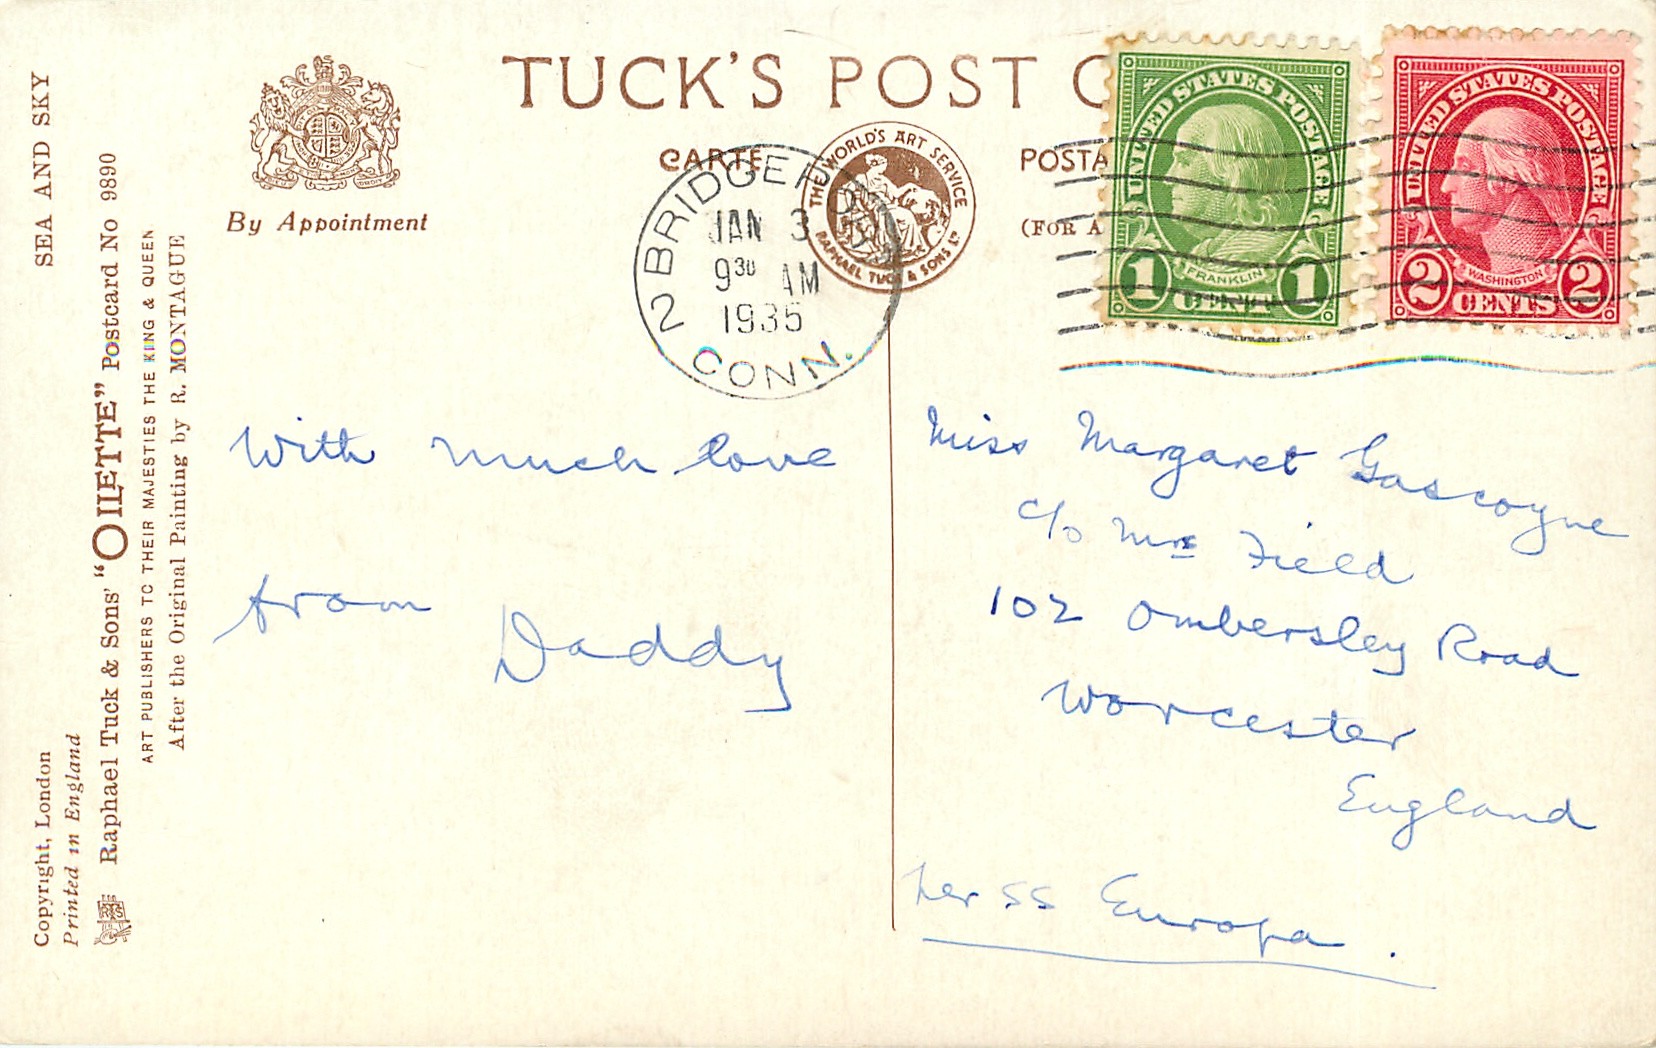 TUCK'S POST C
CARTE
POSTA
(FOR A
By Appointment
THE WORLD'S ART SERVICE
RAPHAEL TUCK & SONS LD
BRIDGEPORT
JAN 3
9 30 AM
1935
2
CONN.
UNITED STATES POSTAGE
FRANKLIN
1 CENT 1
UNITED STATES POSTAGE
WASHINGTON
2 CENTS 2
SEA AND SKY
Copyright, London
Printed in England
Raphael Tuck & Sons' "OILETTE" Postcard No 9890
ART PUBLISHERS TO THEIR MAJESTIES THE KING & QUEEN
After the Original Painting by R. MONTAGUE
With much love
from
Daddy
Miss Margaret Gascoyne
c/o Mrs Field
102 Ombersley Road
Worcester
England
per SS Europa.